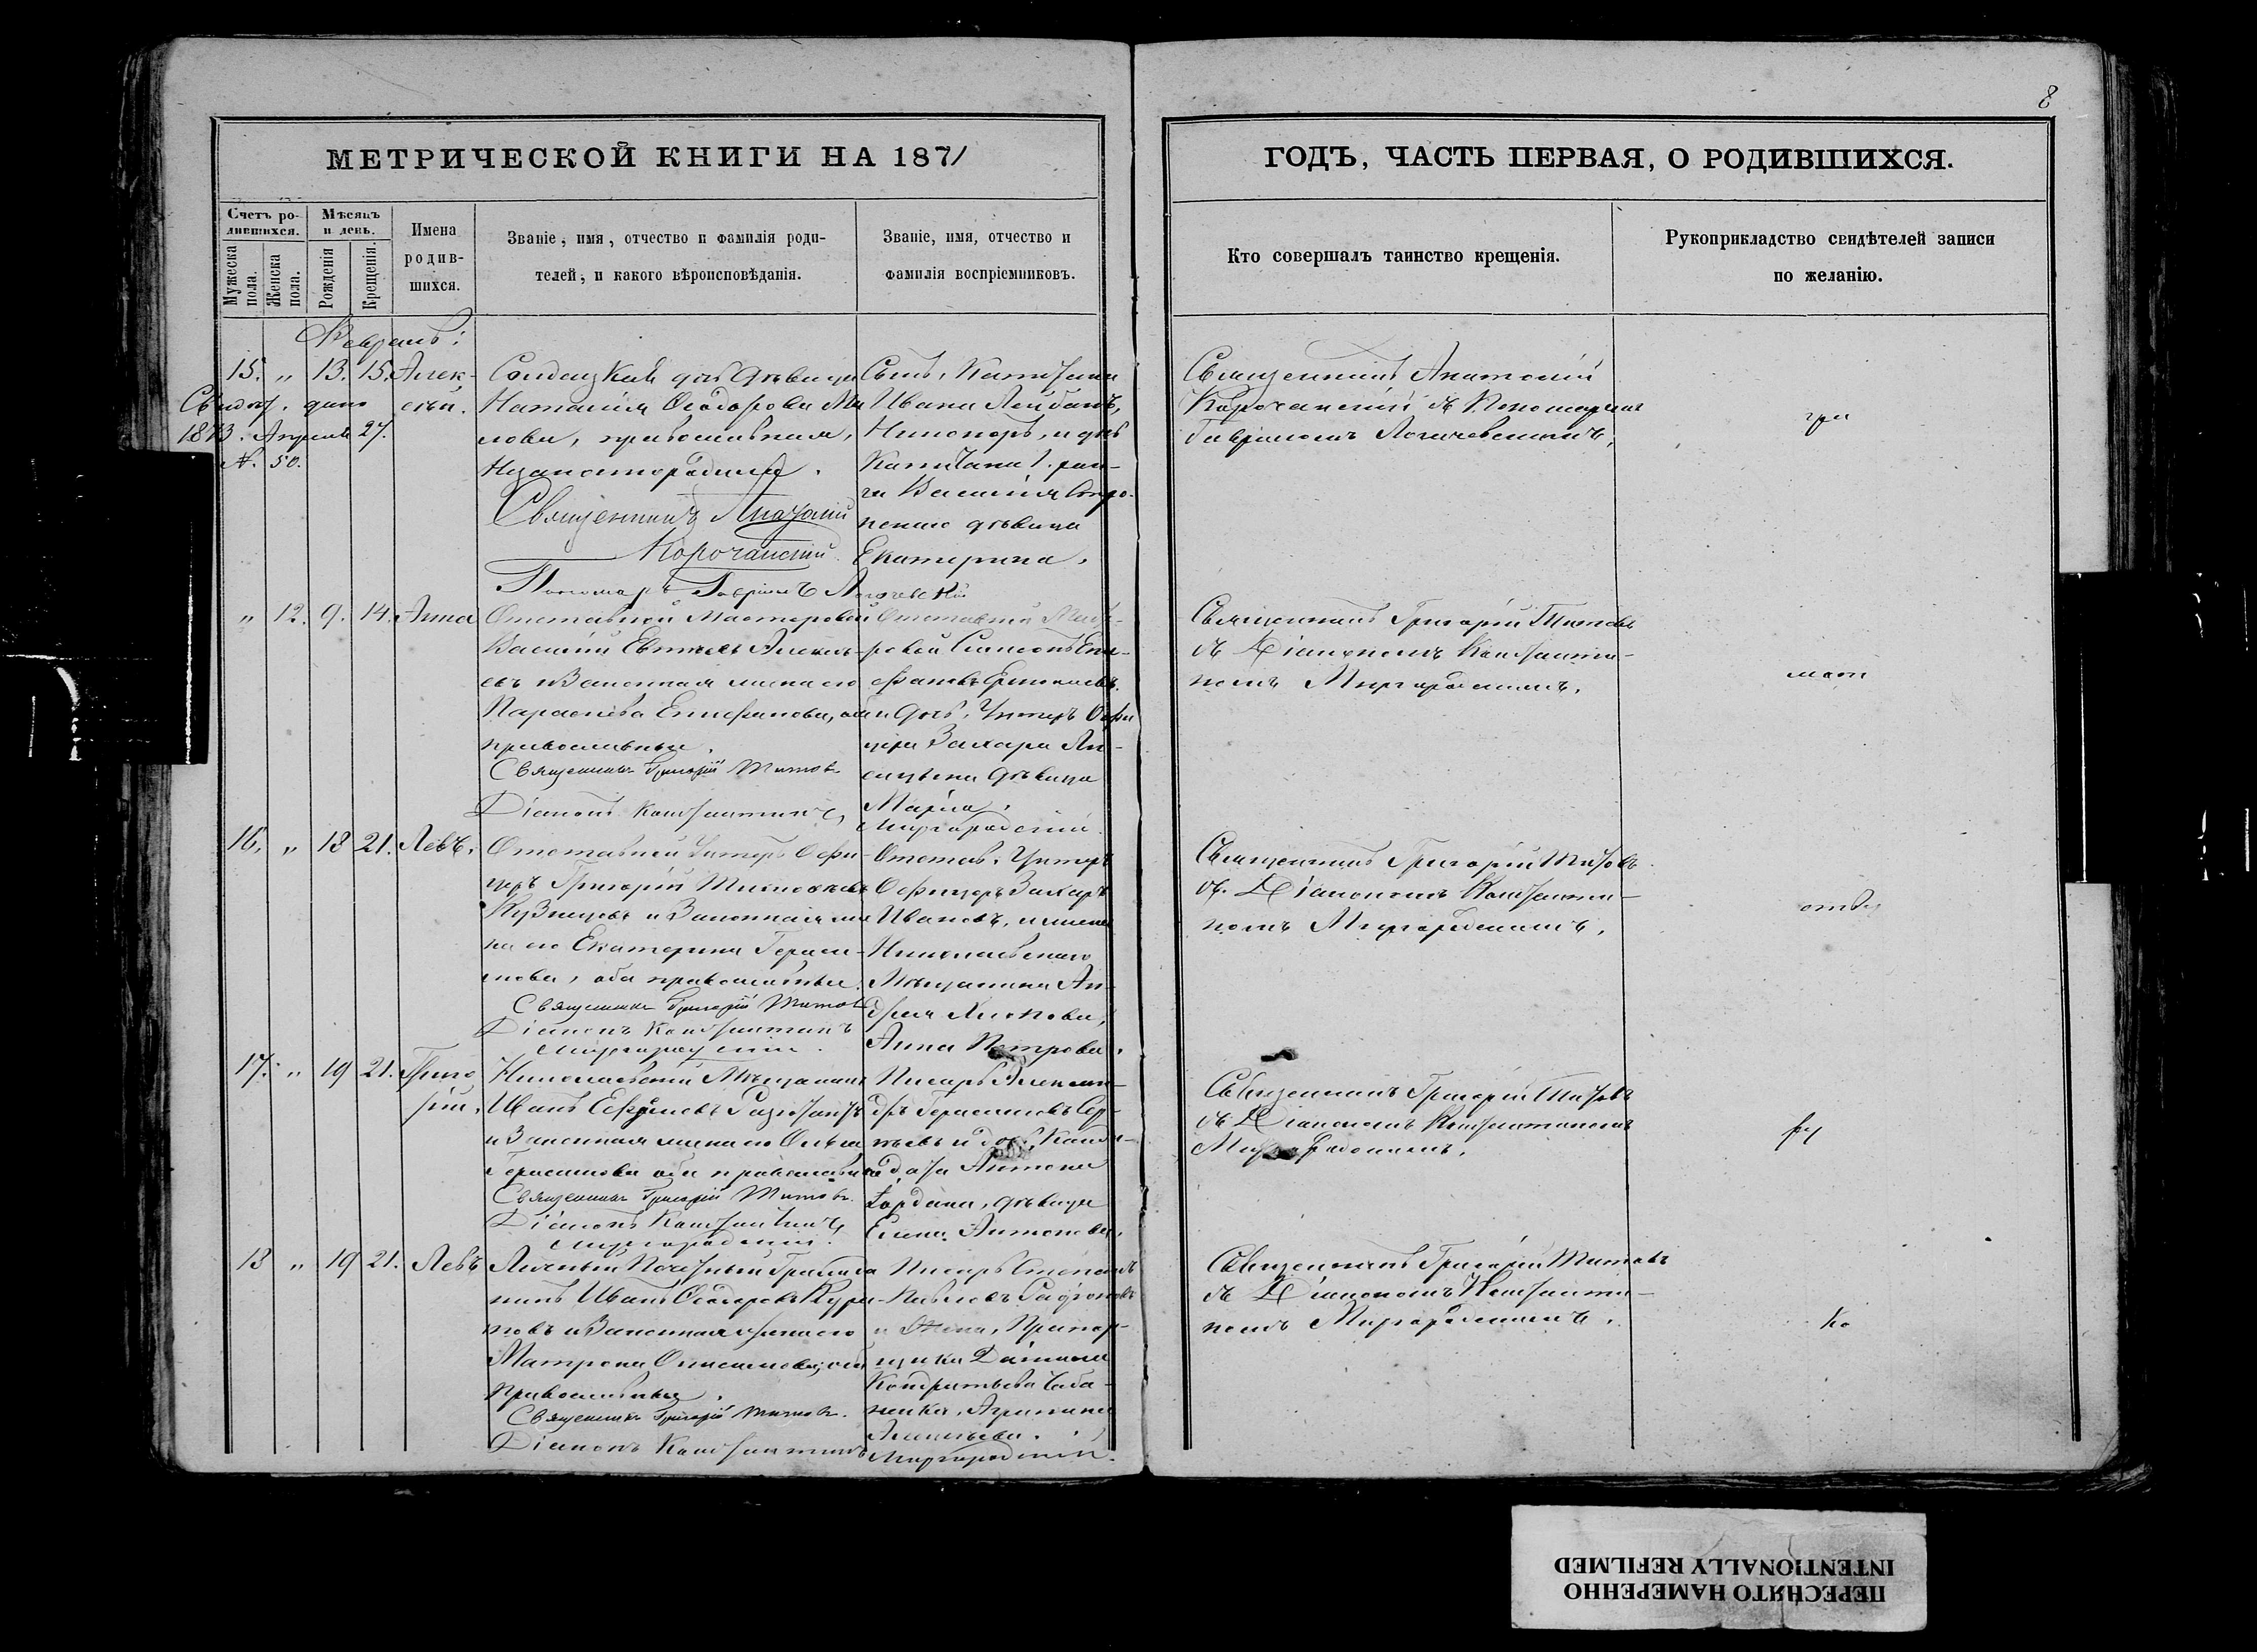 8
МЕТРИЧЕСКОЙ КНИГИ НА 1871
ГОДЪ, ЧАСТЬ ПЕРВАЯ, О РОДИВШИХСЯ.
Счетъ ро-
дившихся.
Мужеска пола.
Женска пола.
Мѣсяцъ
и день.
Рожденія
Крещенія.
Имена
родив-
шихся.
Званіе, имя, отчество и фамилія роди-
телей, и какого вѣроисповѣданія.
Званіе, имя, отчество и
фамилія воспріемниковъ.
Кто совершалъ таинство крещенія.
Рукоприкладство свидѣтелей записи
по желанію.
Февраль:
15. " 13. 15. Алек-
сѣй.
Свидѣт. дано
1873. Апрель 27.
N. 50.
Солдатская дочь дѣвица
Наталія Ѳеодорова
лова, православная,
незаконнорадила.
Священникъ Анатолій
Корочанскій
Пономарь Гавріилъ
Сынъ, Капитана
Ивана
и дочь
Капитана 1. ран-
га Василія
дѣвица
Екатерина.
Священникъ Анатолій
Корочанскій съ Пономаремъ
Гавріиломъ
при
" 12. 9. 14. Анна
Отставной Мастеровой
Василій Евтиховъ Алексѣ-
евъ и Законная жена его
Параскева Епифанова, оба
православные.
Священникъ Григорій Титовъ
Діаконъ Константинъ
Миргородскій.
Отставной Масте-
ровой Симеонъ Епи-
фановъ
и дочь, Унтеръ Офи
цера Захара
дѣвица
Марія.
Священникъ Григорій Титовъ
съ Діакономъ Константи-
номъ Миргородскимъ.
мот
16. " 18 21. Левъ.
Отставной Унтеръ Офи-
церъ Григорій Тимоѳеевъ
Кузнецовъ и Законная же
на его Екатерина Гераси-
мова, оба православные.
Священникъ Григорій Титовъ
Діаконъ Константинъ
Миргородскій.
Отстав. Унтеръ
Офицеръ Захаръ
Ивановъ, и жена
Николаевскаго
Мѣщанина Ан-
дрея
Анна Петрова.
Священникъ Григорій Титовъ
съ Діакономъ Константи-
номъ Миргородскимъ.
17. " 19 21. Григо
рій,
Николаевскій Мѣщанинъ
Иванъ Ефимовъ
и Законная жена его Ольга
Герасимова оба православные
Священникъ Григорій Титовъ.
Діаконъ Константинъ
Миргородскій.
Писарь Алексан-
дръ Герасимовъ Сер-
гѣевъ и дочь, Канди-
дата Антона
дѣвица
Елена Антонова.
Священникъ Григорій Титовъ
съ Діакономъ Константиномъ
Миргородскимъ.
18 " 19 21. Левъ
Личный Почетный Гражда
нинъ Иванъ Ѳеодоровъ
и Законная жена его
Матрона Онисимова, оба
православные.
Священникъ Григорій Титовъ.
Діаконъ Константинъ
Миргородскій.
Писарь Степанъ
Павловъ
и жена, Прапор-
щика Даніила
Кондратьева Чаба-
ненка,
Священникъ Григорій Титовъ
съ Діакономъ Константи-
номъ Миргородскимъ.
Ко
ПЕРЕСНЯТО НАМЕРЕННО
INTENTIONALLY REFILMED